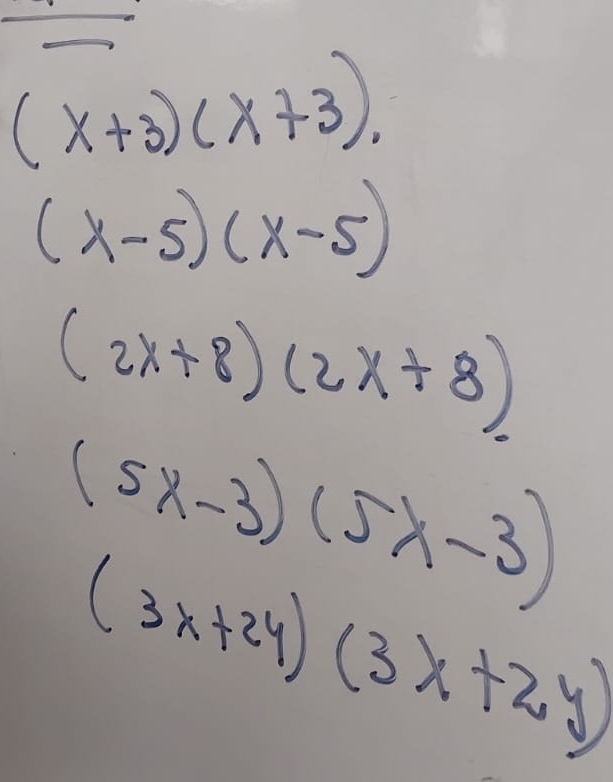 (x+3)(x+3).
(x-5)(x-5)
(2x+8)(2x+8).
(5x-3)(5x-3)
(3x+2y)(3x+2y)